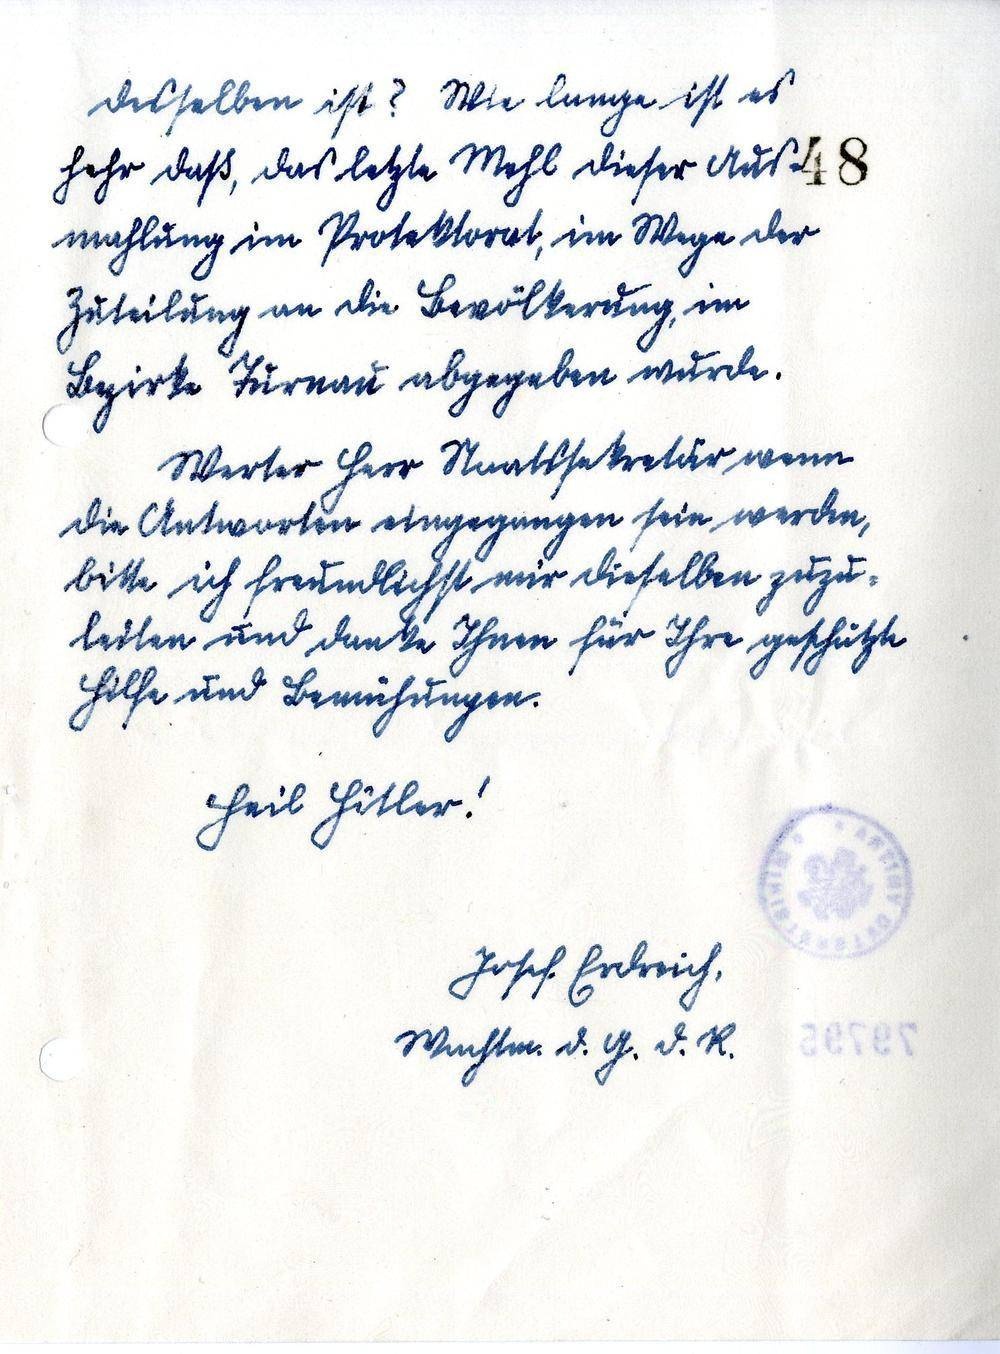 desselben ist? Wie lange ist es
hehr daß, das letzte Mehl dieser Aus-
48
mahlung im Protektorat, im Wege der
Zuteilung an die Bevölkerung, im
Bezirke Turnau abgegeben wurde.
Werter Herr Staatssekretär wenn
die Antworten eingegangen sein werden,
bitte ich freundlichst mir dieselben zuzu-
leiten und danke Ihnen für Ihre geschätzte
Hilfe und Bemühungen.
Heil Hitler!
Josef Erdreich,
Wachtm. d. G. d. R.
79795